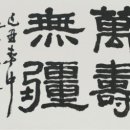 萬壽
無疆
己丑春